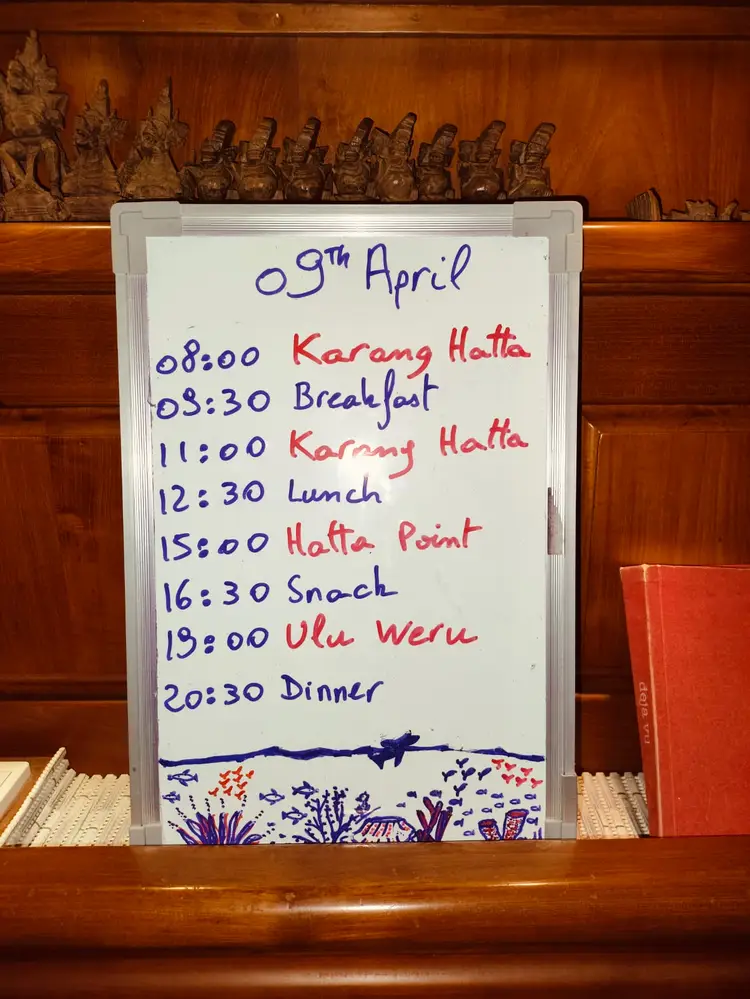 09th April
08:00 Karang Hatta
09:30 Breakfast
11:00 Karang Hatta
12:30 Lunch
15:00 Hatta Point
16:30 Snack
19:00 Ulu Weru
20:30 Dinner
deja vu